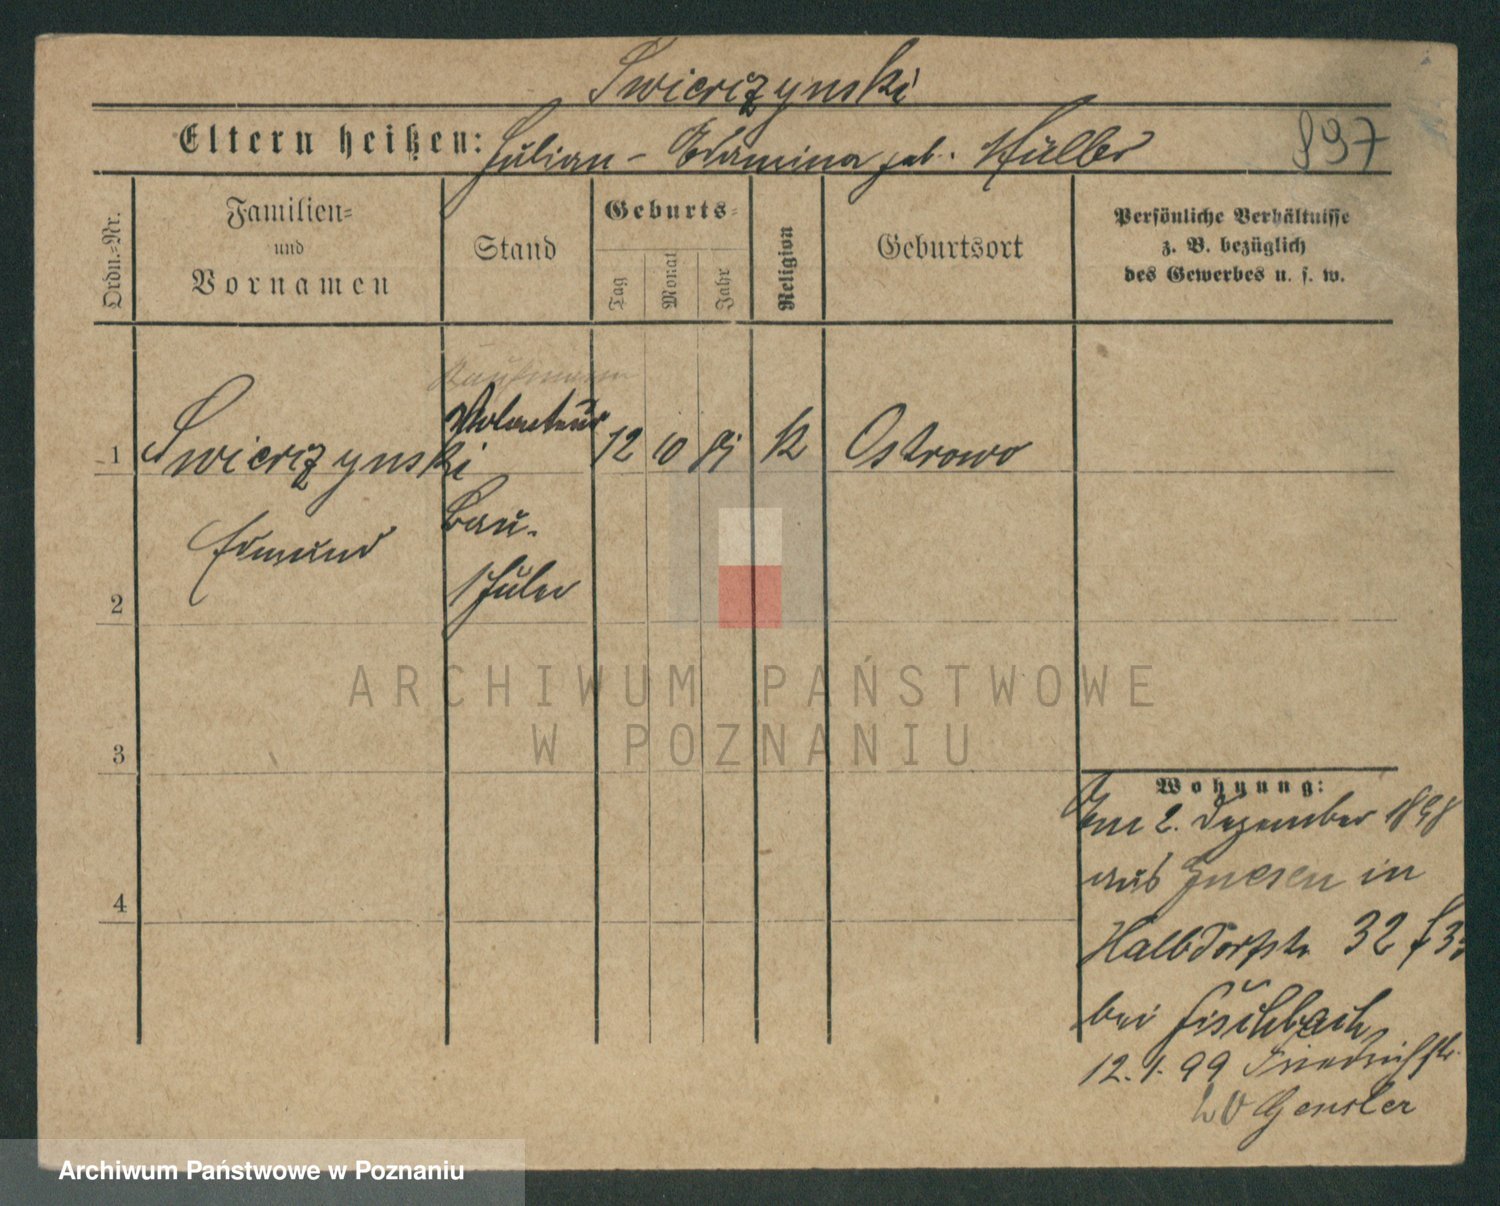 Swierczynski
Eltern heißen: Julian - geb. Müller
897
Ordn.=Nr.
Familien=
und
Vornamen
Stand
Geburts=
Tag
Monat
Jahr
Religion
Geburtsort
Persönliche Verhältnisse
z. B. bezüglich
des Gewerbes u. s. w.
Kaufmann
Volunteur
1 Swierczynski 12 10 k Ostrowo
Edmund
Bau-
schüler
2
ARCHIWUM PAŃSTWOWE
W POZNANIU
3
4
Wohnung:
Am 2. Dezember 1898
aus Gnesen in
Halbdorfstr 32
bei Fischbach
12. 1. 99 Friedrichstr.
Gensler
Archiwum Państwowe w Poznaniu